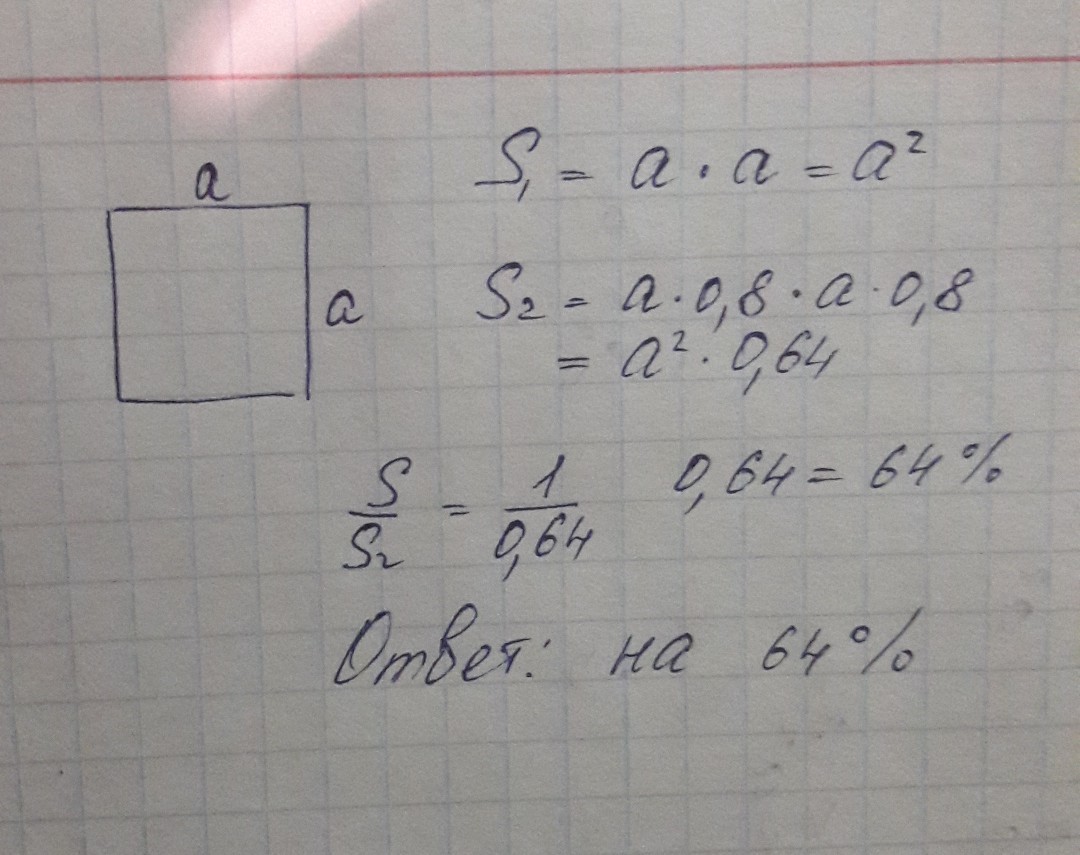 a
a
S₁ = a · a = a²
S₂ = a · 0,8 · a · 0,8
= a² · 0,64
S/S₂ = 1/0,64   0,64 = 64%
Ответ: на 64%